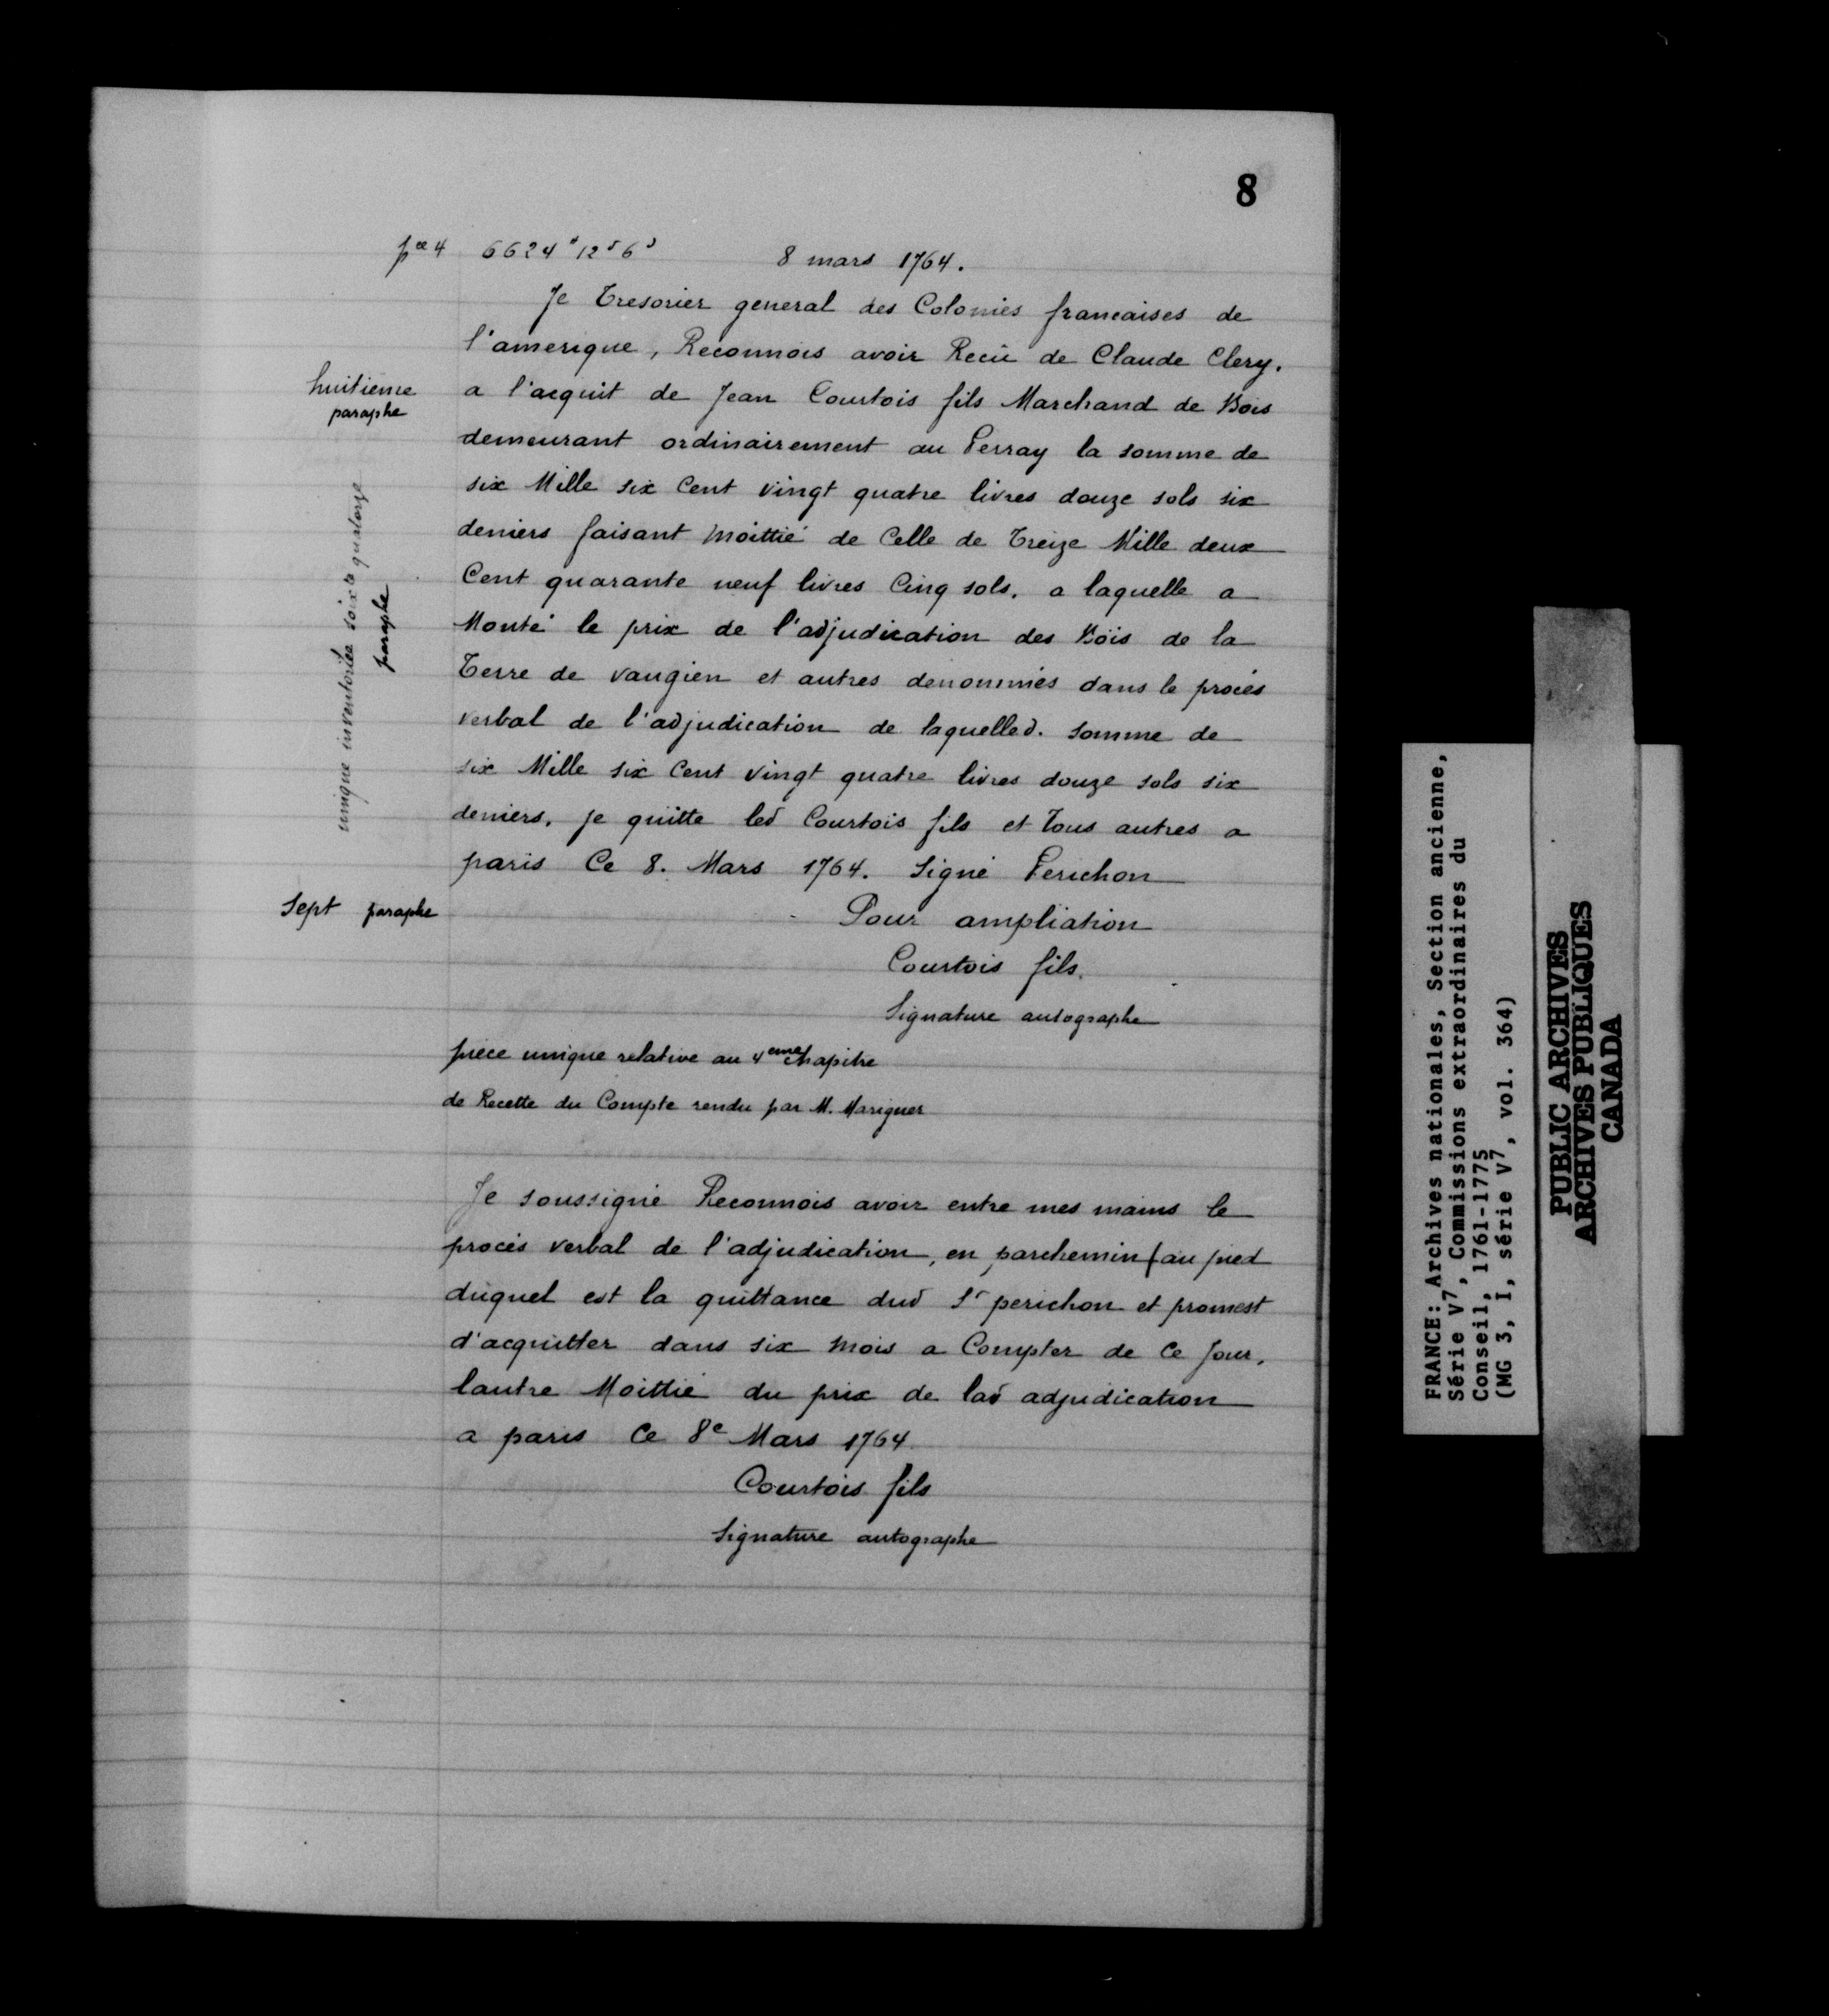 8
pce 4 6624# 12s 6d 8 mars 1764.
Je Tresorier general des Colonies francaises de
l'amerique, Reconnois avoir Recû de Claude Clery.
huitieme
paraphe
a l'acquit de Jean Courtois fils Marchand de Bois
demeurant ordinairement au Perray la somme de
six Mille six Cent vingt quatre livres douze sols six
deniers faisant Moittié de Celle de Treize Mille deux
Cent quarante neuf livres Cinq sols. a laquelle a
Monté le prix de l'adjudication des Bois de la
Terre de vaugien et autres denommés dans le procés
verbal de l'adjudication de laquelled. somme de
six Mille six Cent vingt quatre livres douze sols six
deniers. je quitte led Courtois fils et Tous autres a
paris Ce 8. Mars 1764. Signé Perichon
unique inventoriée soixte quatorze
paraphe
Sept paraphe
Pour ampliation
Courtois fils.
Signature autographe
piece unique relative au 4eme Chapitre
de Recette du Compte rendu par M. Marigner
Je soussigné Reconnois avoir entre mes mains le
procés verbal de l'adjudication, en parchemin (au pied
duquel est la quittance dud Sr perichon et promest
d'acquitter dans six Mois a Compter de Ce Jour.
lautre Moittié du prix de lad adjudication
a paris Ce 8e Mars 1764.
Courtois fils
Signature autographe
FRANCE: Archives nationales, Section ancienne,
Série V7, Commissions extraordinaires du
Conseil, 1761-1775
(MG 3, I, série V7, vol. 364)
PUBLIC ARCHIVES
ARCHIVES PUBLIQUES
CANADA